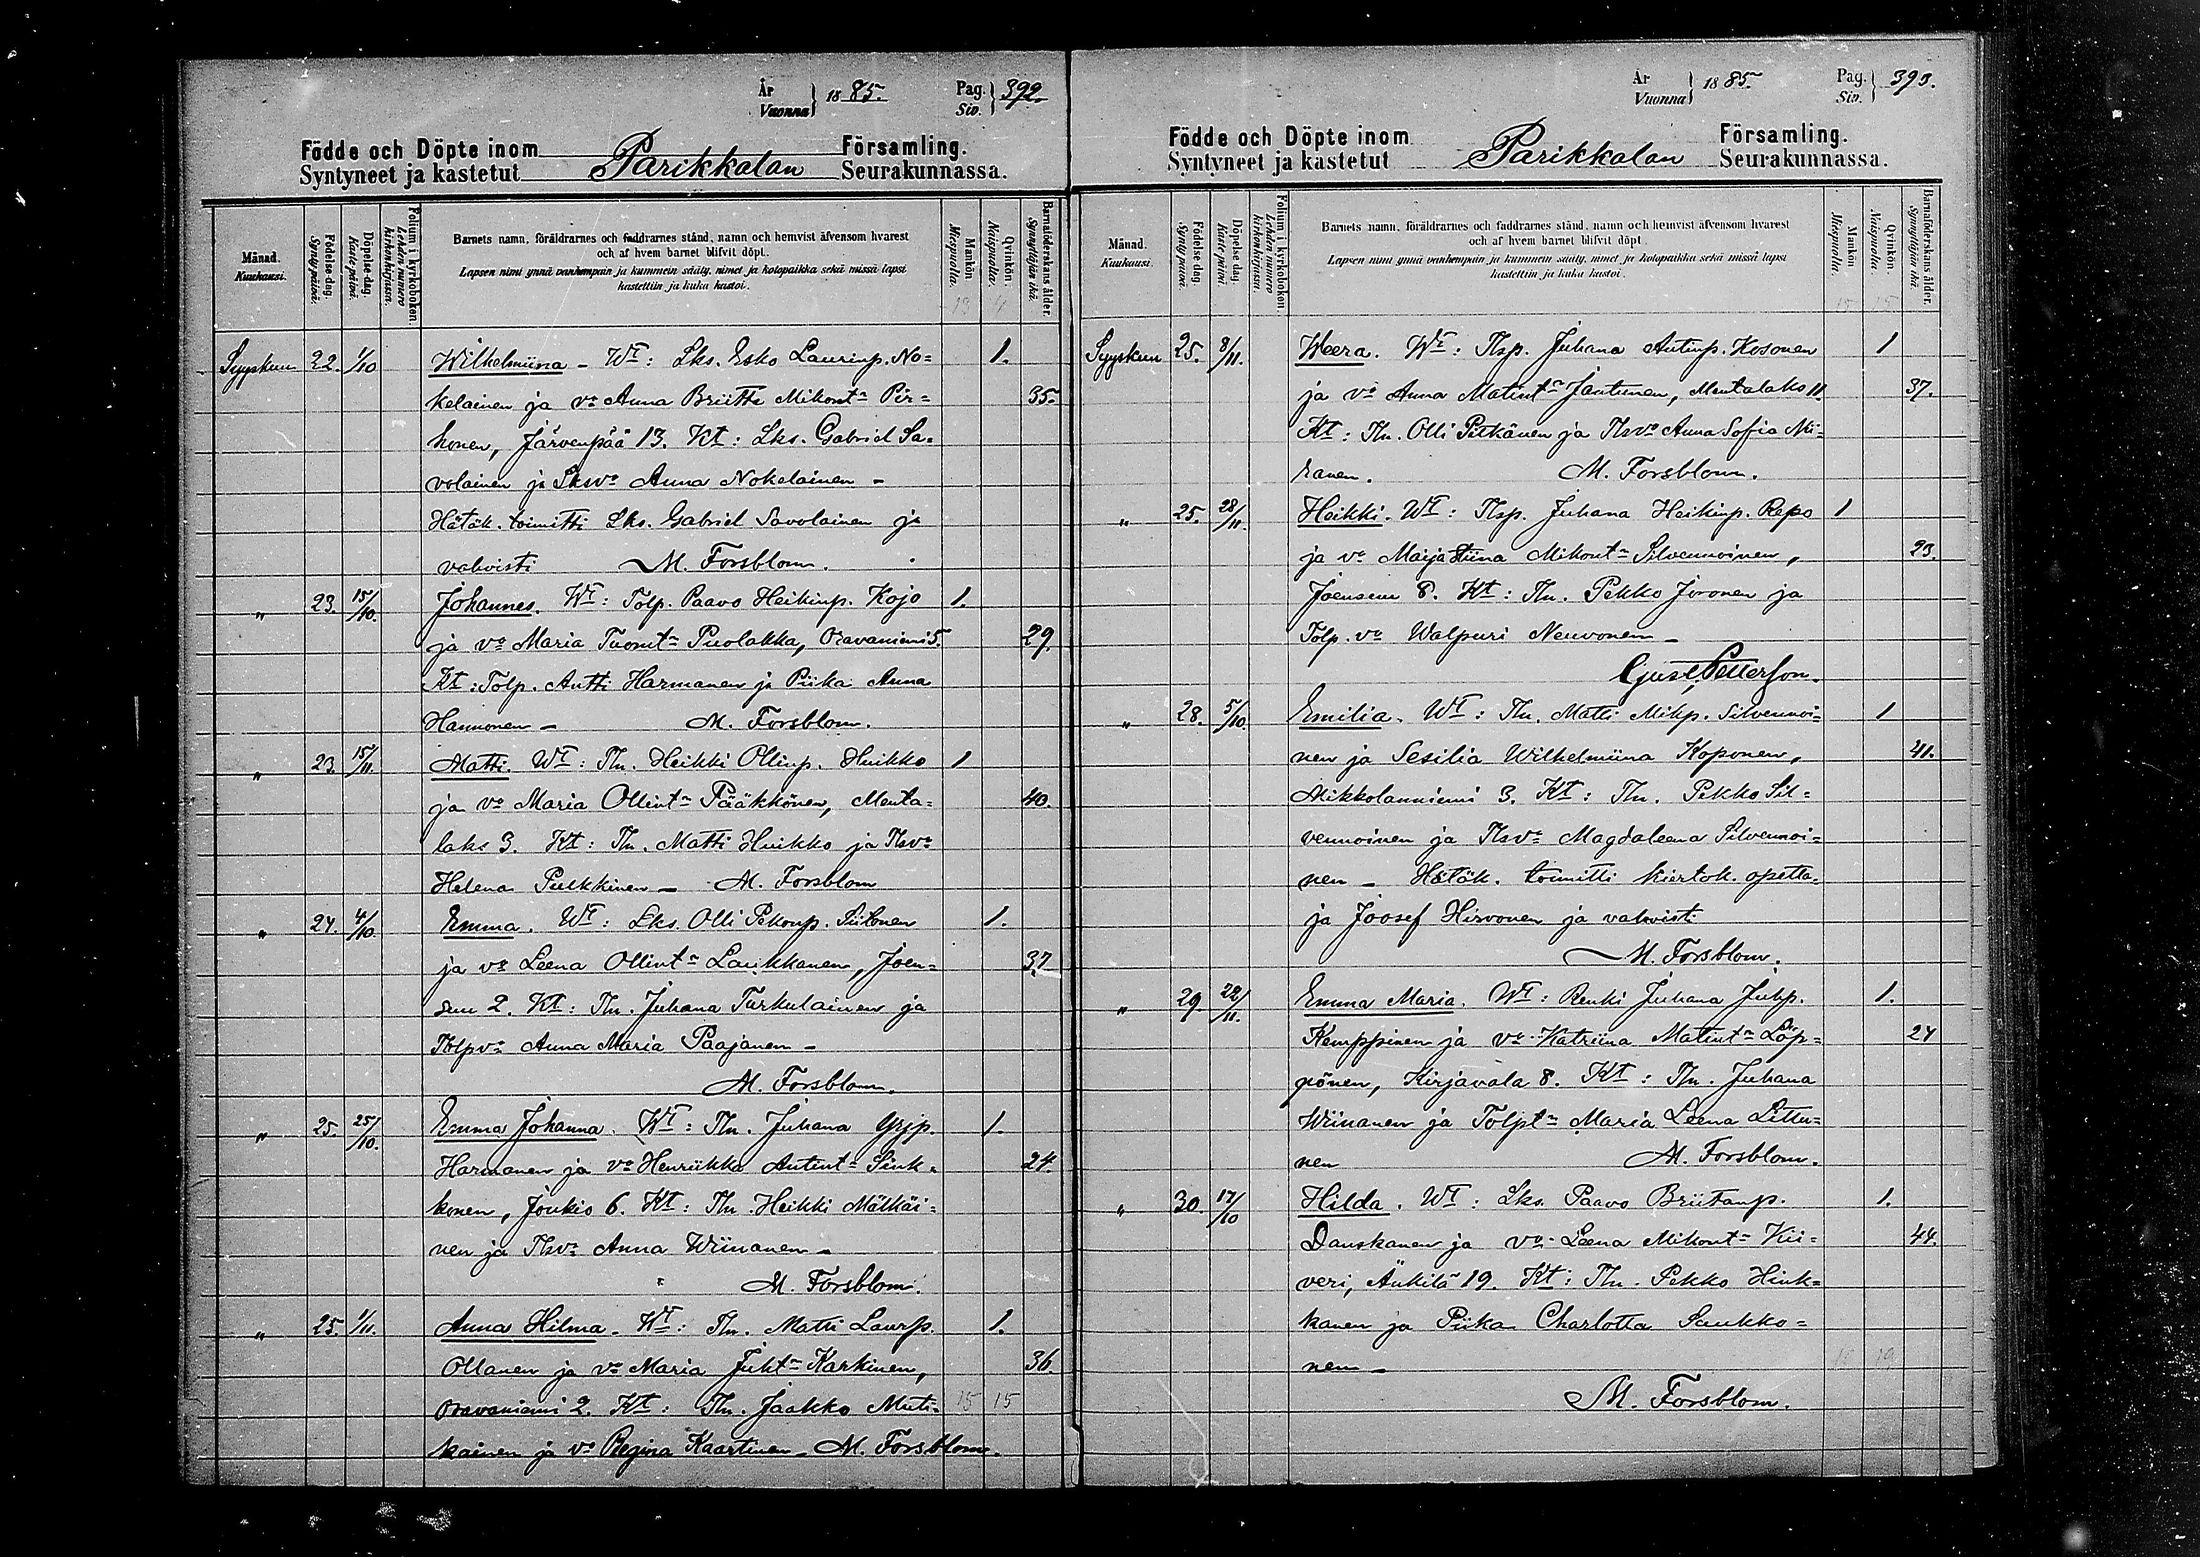 År Vuonna } 1885. Pag. Siv. } 392.
Födde och Döpte inom Församling.
Syntyneet ja kastetut Parikkalan Seurakunnassa.
Månad. Kuukausi.
Födelse-dag. Synty päivä.
Döpelse-dag. Kaste päivä.
Folium i kyrkoboken. Lehden numero kirkonkirjassa.
Barnets namn, föräldrarnes och faddrarnes stånd, namn och hemvist äfvensom hvarest
och af hvem barnet blifvit döpt.
Lapsen nimi ynnä vanhempain ja kummein sääty, nimet ja kotopaikka sekä missä lapsi
kastettiin ja kuka kastoi.
Mankön. Miespuolia.
Qvinkön. Naispuolia.
Barnaföderskans ålder. Synnyttäjän ikä.
Syyskuu 22. 1/10 Wilhelmiina - Wt: Lks. Esko Laurinp. No= 1.
kelainen ja vo Anna Briitta Mikont. Pir= 35.
honen, Järvenpää 13. Kt: Lks. Gabriel Sa=
volainen ja Lksvo Anna Nokelainen -
Hätäk. toimitti Lks. Gabriel Savolainen ja
vahvisti M. Forsblom.
" 23. 15/10. Johannes. Wt: Tolp. Paavo Heikinp. Kojo 1.
ja vo Maria Tuomt. Puolakka, Oravaniemi 5. 29.
Kt: Tolp. Antti Harmanen ja Piika Anna
Hannonen - M. Forsblom.
" 23. 15/11. Matti. Wt: Tln. Heikki Ollinp. Huikko 1
ja vo Maria Ollint. Pääkkönen, Menta= 40.
laks 3. Kt: Tln. Matti Huikko ja Tlsvo
Helena Pulkkinen - M. Forsblom
" 24. 4/10. Emma. Wt: Lks. Olli Pekonp. Siitonen 1.
ja vo Leena Ollint. Laukkanen, Joen= 37.
suu 2. Kt: Tln. Juhana Turkulainen ja
Tolpvo Anna Maria Paajanen -
M. Forsblom.
" 25. 25/10. Emma Johanna. Wt: Tln. Juhana Yrjp. 1.
Harmanen ja vo Henriikka Antint. Sink= 24.
konen, Joukio 6. Kt: Tln. Heikki Mälkäi=
nen ja Tlsvo Anna Wiinanen -
M. Forsblom.
" 25. 1/11. Anna Hilma. Wt: Tln. Matti Laurp. 1.
Ollanen ja vo Maria Juht. Karkinen, 36.
Oravaniemi 2. Kt: Tln. Jaakko Muti= 15 15
kainen ja vo Regina Kaartinen - M. Forsblom.
År Vuonna } 1885. Pag. Siv. } 393.
Födde och Döpte inom Församling.
Syntyneet ja kastetut Parikkalan Seurakunnassa.
Månad. Kuukausi.
Födelse dag. Synty päivä.
Döpelse dag. Kaste päivä.
Folium i kyrkoboken. Lehden numero kirkonkirjassa.
Barnets namn, föräldrarnes och faddrarnes stånd, namn och hemvist äfvensom hvarest
och af hvem barnet blifvit döpt.
Lapsen nimi ynnä vanhempain ja kummein sääty, nimet ja kotopaikka sekä missä lapsi
kastettiin ja kuka kastoi.
Mankön Miespuolia.
Qvinkön. Naispuolia.
Barnaföderskans ålder. Synnyttäjän ikä.
15 15
Syyskuu 25. 8/11. Weera. Wt: Tlsp. Juhana Antinp. Kosonen 1
ja vo Anna Matint. Jantunen, Mentalaks 11. 37.
Kt: Tln. Olli Pitkänen ja Tlsvo Anna Sofia Mii=
ranen. M. Forsblom.
" 25. 28/11. Heikki. Wt: Tlsp. Juhana Heikinp. Repo 1
ja vo Maija Stiina Mikont. Silvennoinen, 23.
Joensuu 8. Kt: Tln. Pekko Jrronen ja
Tolp. vo Walpuri Neuvonen -
Gust. Petterson.
" 28. 5/10. Emilia. Wt: Tln. Matti Mikp. Silvennoi= 1
nen ja Sesilia Wilhelmiina Koponen, 41.
Mikkolanniemi 3. Kt: Tln. Pekko Sil=
vennoinen ja Tlsvo Magdaleena Silvennoi=
nen - Hätäk. toimitti kiertok. opetta=
ja Joosef Hirvonen ja vahvisti
M. Forsblom.
" 29. 22/11. Emma Maria. Wt: Renki Juhana Juhp. 1.
Kemppinen ja vo Katriina Matint. Löp= 24
pönen, Kirjavala 8. Kt: Tln. Juhana
Wiinanen ja Tolpt. Maria Leena Littu=
nen M. Forsblom.
" 30. 17/10 Hilda. Wt: Lks. Paavo Briitanp. 1.
Danskanen ja vo Leena Mikont. Kii= 44.
veri, Änkilä 19. Kt: Tln. Pekko Hink=
kanen ja Piika Charlotta Saukko=
nen -
M. Forsblom.